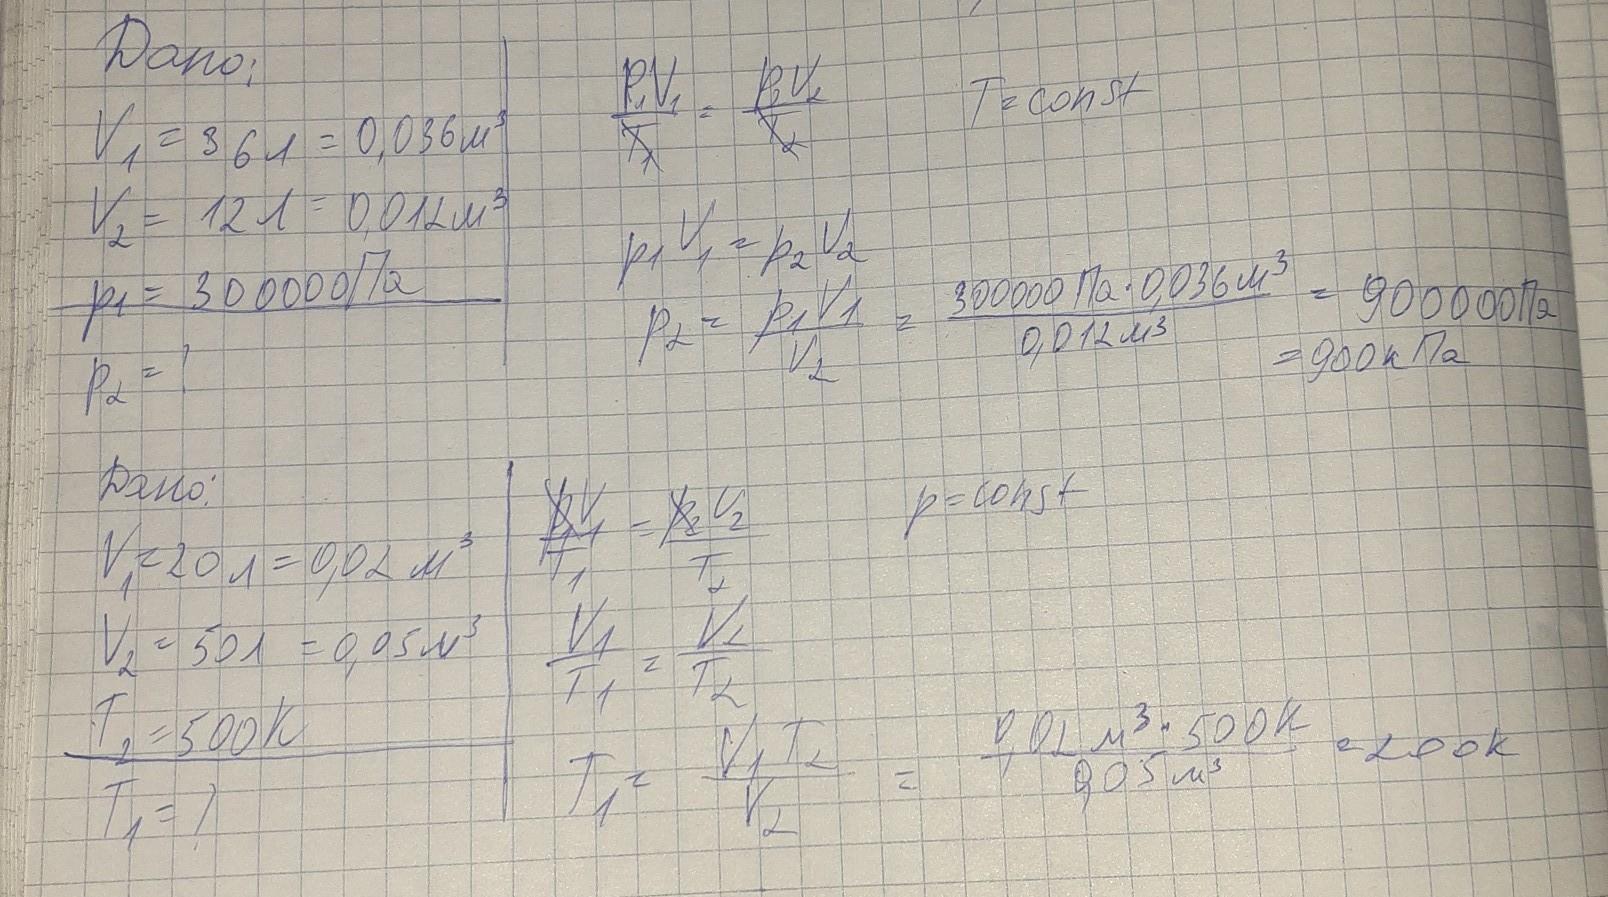 Дано:
V₁ = 36л = 0,036м³
V₂ = 12л = 0,012м³
p₁ = 300000Па
p₂ = ?
p₁V₁/T₁ = p₂V₂/T₂ T = const
p₁V₁ = p₂V₂
p₂ = p₁V₁/V₂ = 300000Па · 0,036м³/0,012м³ = 900000Па
= 900кПа
Дано:
V₁ = 20л = 0,02м³
V₂ = 50л = 0,05м³
T₂ = 500К
T₁ = ?
p₁V₁/T₁ = p₂V₂/T₂ p = const
V₁/T₁ = V₂/T₂
T₁ = V₁T₂/V₂ = 0,02м³ · 500К/0,05м³ = 200К